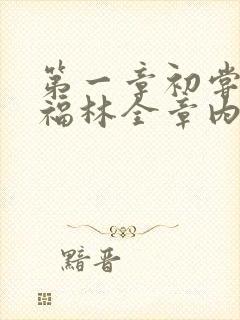 第一章初尝
福林全章内
黯晋